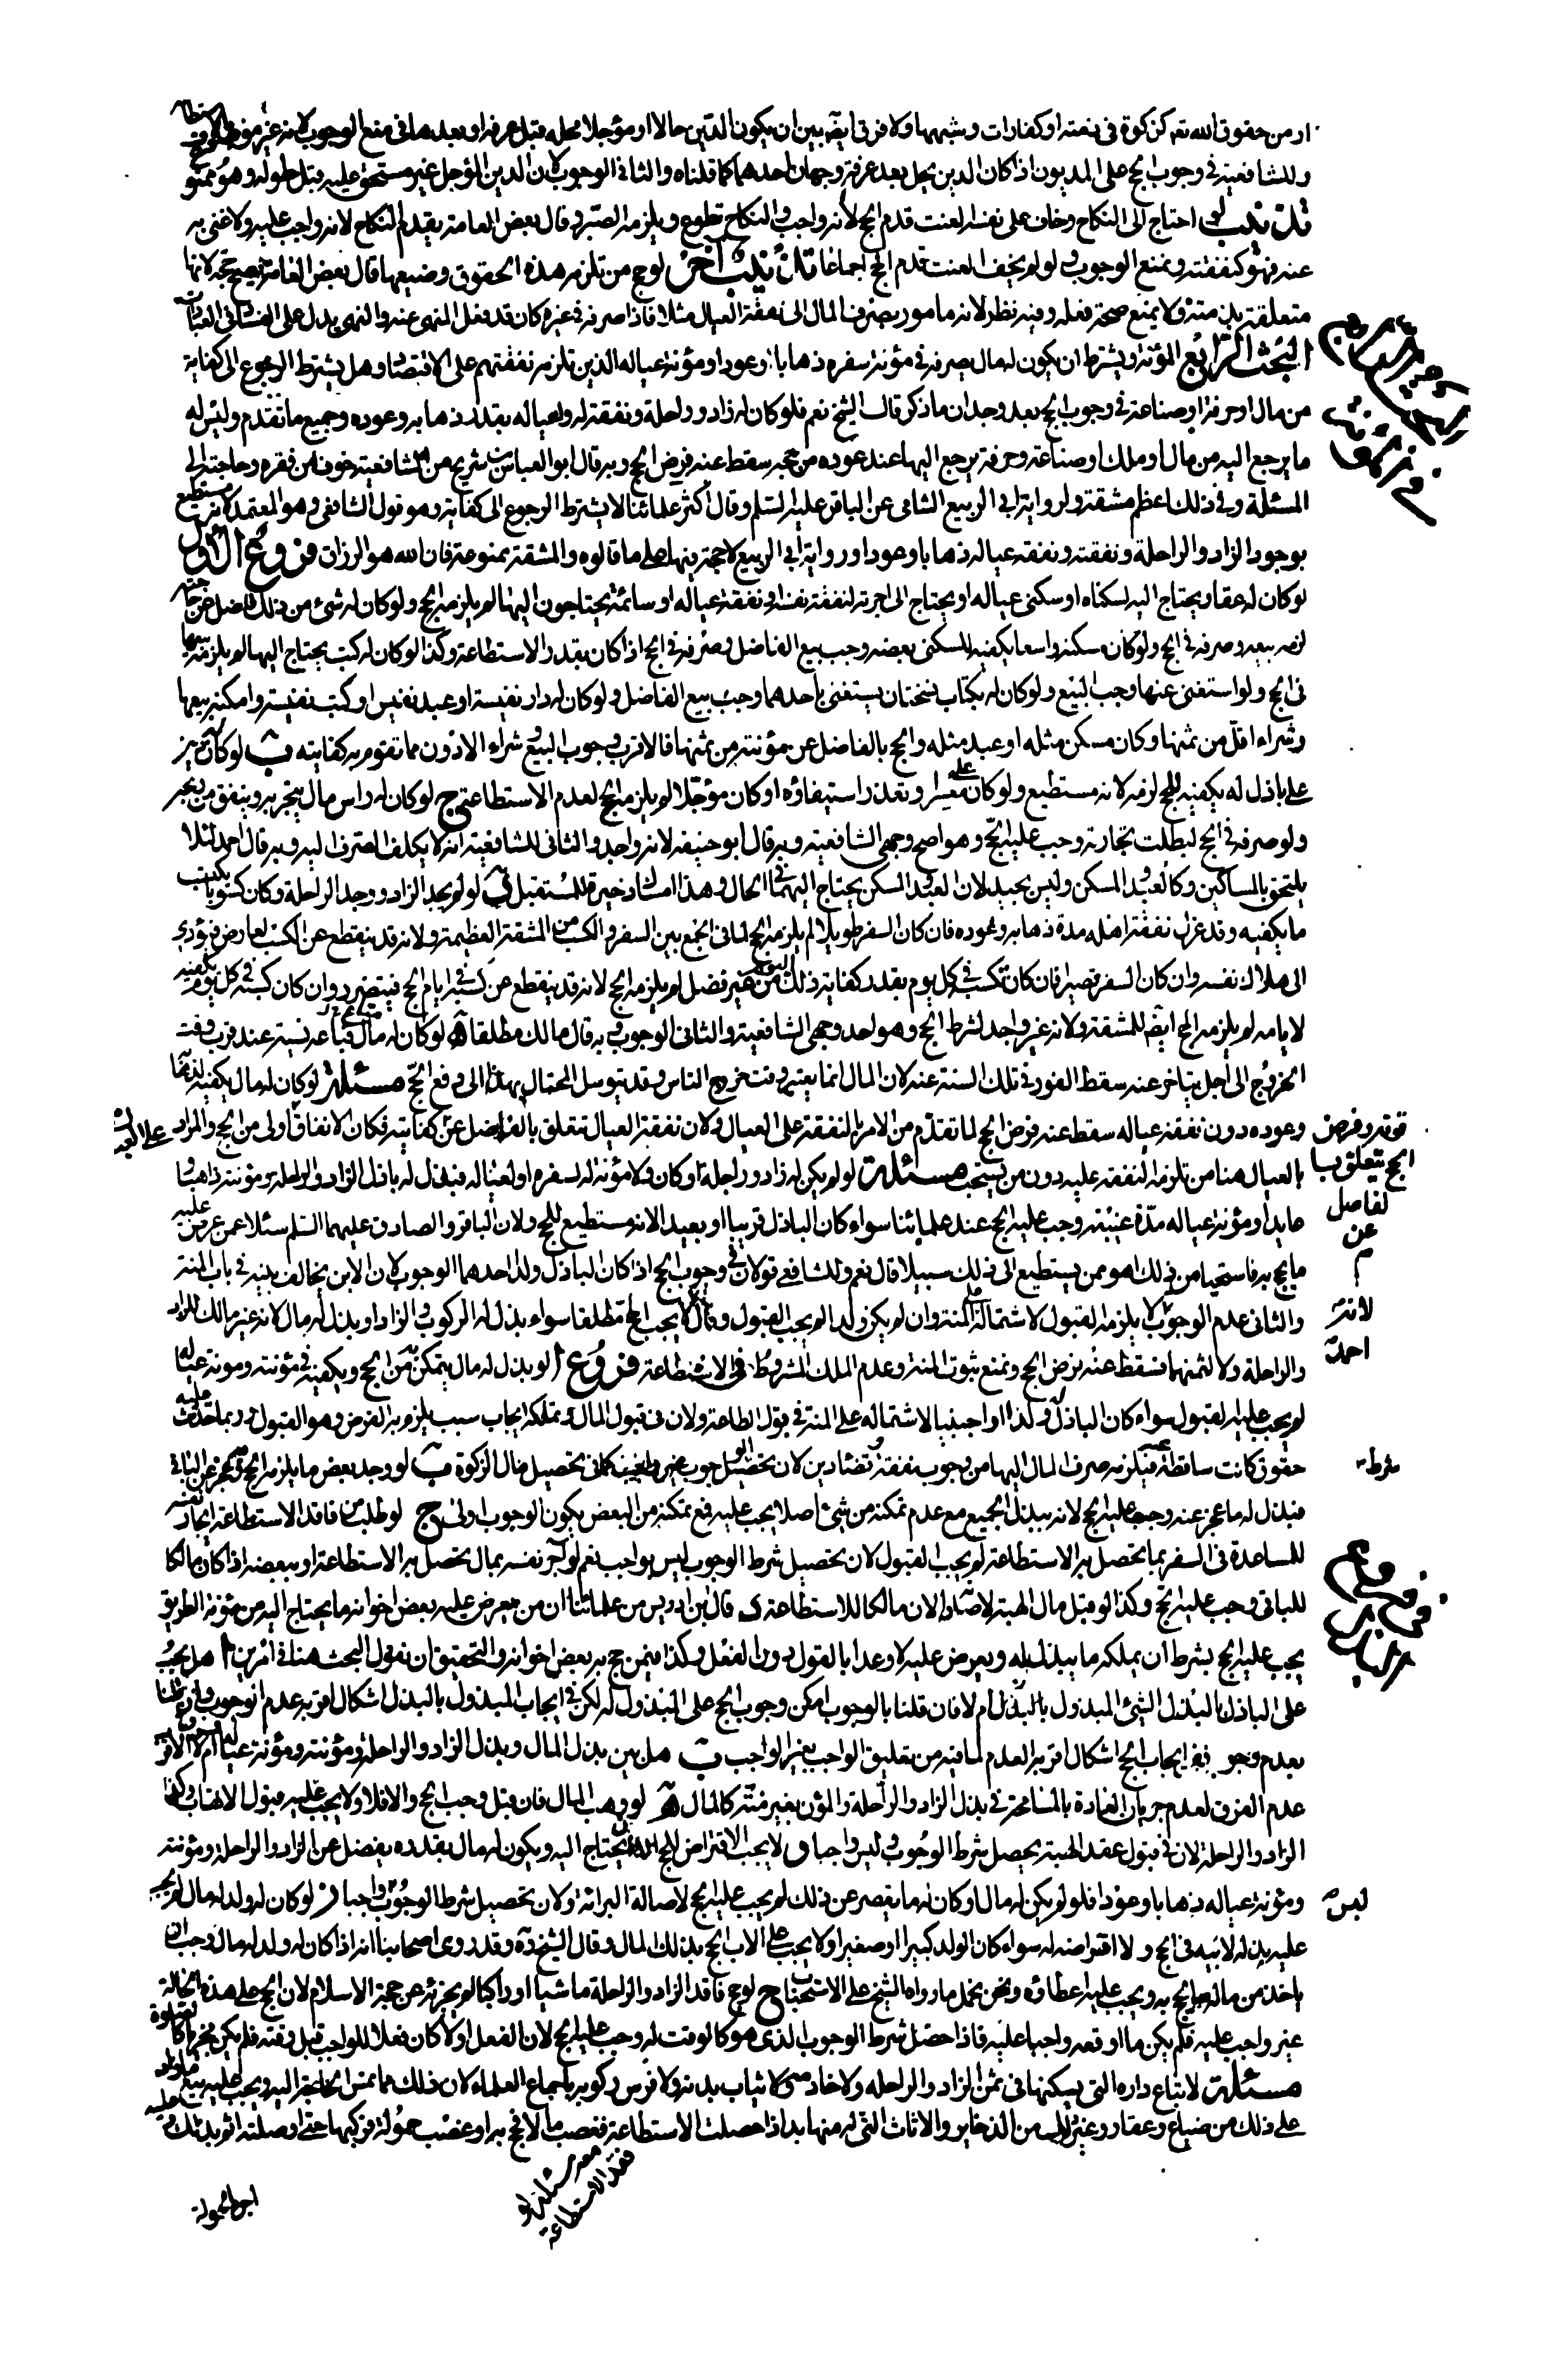 او من حقوق الله تعالى كزكوة في ذمته او كفارات وشبهها ولا فرق ايضا بين ان يكون الدين حالا او مؤجلا محله قبل عرفة او بعدها في منع الوجوب لانه غير
وللشافعية في وجوب الحج على المديون اذا كان الدين يحل بعد عرفة وجهان احدهما كما قلناه والثاني الوجوب لان الدين المؤجل غير مستحق عليه قبل حلوله وهو ممنوع
تذنيب لو احتاج الى النكاح وخاف على نفسه العنت قدم الحج لانه واجب والنكاح تطوع ويلزمه الصبر وقال بعض العامة يقدم النكاح لانه واجب عليه ولا غنى به
عنه فهو كنفقته ويمنع الوجوب ولو لم يخف العنت قدم الحج اجماعا تذنيب آخر لو حج من تلزمه هذه الحقوق وضيعها قال بعض العامة يصح حجه لانها
متعلقة بذمته فلا يمنع صحة فعله وفيه نظر لانه مامور بصرف المال الى نفقة العيال مثلا فاذا صرفه في غيره كان قد فعل المنهي عنه والنهي يدل على الفساد في العبادات
البحث الرابع المؤنة ويشترط ان يكون له مال يصرفه في مؤنة سفره ذهابا وعودا ومؤنة عياله الذين تلزمه نفقتهم على الاقتصاد وهل يشترط الرجوع الى كفاية
من مال او حرفة او صناعة في وجوب الحج بعد وجدان ما ذكر قال الشيخ نعم فلو كان له زاد وراحلة ونفقة له ولعياله بقدر ذهابه وعوده وجميع ما تقدم وليس له
ما يرجع اليه من مال او ملك او صناعة وحرفة يرجع اليها عند عوده من حجه سقط عنه فرض الحج وبه قال ابو العباس بن شريح من الشافعية خوفا من فقره وحاجته الى
المسئلة وفي ذلك اعظم مشقة ولرواية ابي الربيع الشامي عن الباقر عليه السلم وقال اكثر علمائنا لا يشترط الرجوع الى كفاية وهو قول الشافعي وهو المعتمد لانه مستطيع
بوجود الزاد والراحلة ونفقته ونفقة عياله ذهابا وعودا ورواية ابي الربيع لا حجة فيها على ما قالوه والمشقة ممنوعة فان الله هو الرزاق فروع الاول
لو كان له عقار يحتاج اليه لسكناه او سكنى عياله او يحتاج الى اجرته لنفقة نفسه او نفقة عياله او سائمة يحتاجون اليها لم يلزمه الحج ولو كان له شئ من ذلك فاضل عن حاجته
لزمه بيعه وصرفه في الحج ولو كان مسكنه واسعا يكفيه للسكنى بعضه وجب بيع الفاضل وصرفه في الحج اذا كان بقدر الاستطاعة وكذا لو كان له كتب يحتاج اليها لم يلزمه بيعها
في الحج ولو استغنى عنها وجب البيع ولو كان له بكتاب نسختان يستغنى باحدهما وجب بيع الفاضل ولو كان له دار نفيسة او عبد نفيس او كتب نفيسة وامكنه بيعها
وشراء اقل من ثمنها وكان مسكن مثله او عبد مثله والحج بالفاضل عن مؤنته من ثمنها فالاقرب وجوب البيع وشراء الادون مما تقوم به كفايته ب لو كان له دين
على باذل له يكفيه للحج لزمه لانه مستطيع ولو كان على معسر او تعذر استيفاؤه او كان مؤجلا لم يلزمه الحج لعدم الاستطاعة ج لو كان له راس مال يتجر به وينفق من ربحه
ولو صرفه في الحج لبطلت تجارته وجب عليه الحج وهو اصح وجهي الشافعية وبه قال ابو حنيفة لانه واجد والثاني للشافعية انه لا يكلف الصرف اليه وبه قال احمد لئلا
يلتحق بالمساكين وكالعبد والمسكن وليس بجيد لان العبد والمسكن يحتاج اليهما في الحال وهذا امساك ذخيرة للمستقبل د لو لم يجد الزاد ووجد الراحلة وكان كسوبا يكتسب
ما يكفيه وقد عزل نفقة اهله مدة ذهابه وعوده فان كان السفر طويلا لم يلزمه الحج لما في الجمع بين السفر والكسب من المشقة العظيمة ولانه قد ينقطع عن الكسب لعارض فيؤدي
الى هلاك نفسه وان كان السفر قصيرا فان كان تكسب في كل يوم بقدر كفاية ذلك اليوم من غير فضل لم يلزمه الحج لانه قد ينقطع عن كسبه في ايام الحج فيتضرر وان كان كسبه في كل يوم يكفيه
لايامه لم يلزمه الحج ايضا للمشقة ولانه غير واجد لشرط الحج وهو احد وجهي الشافعية والثاني الوجوب وبه قال مالك مطلقا ه لو كان له مال فباعه نسيئة عند قرب وقت
الخروج الى اجل يتاخر عنه سقط الفور في تلك السنة عنه لان المال انما يعتبر وقت خروج الناس وقد يتوسل المحتال بهذا الى دفع الحج مسئلة لو كان له مال يكفيه لذهابه
وعوده دون نفقة عياله سقط عنه فرض الحج لما تقدم من الامر بالنفقة على العيال ولان نفقة العيال تتعلق بالفاضل عن كفايته فكان الانفاق اولى من الحج والمراد
بالعيال هنا من تلزمه النفقة عليه دون من يستحب مسئلة لو لم يكن له زاد وراحلة او كان ولا مؤنة له لسفره او لعياله فبذل له باذل الزاد والراحلة ومؤنته ذاهبا و
عايدا ومؤنة عياله مدة غيبته وجب عليه الحج عند علمائنا سواء كان الباذل قريبا او بعيدا لانه مستطيع للحج ولان الباقر والصادق عليهما السلم سئلا عمن عرض عليه
ما يحج به فاستحيا من ذلك اهو ممن يستطيع الى ذلك سبيلا قال نعم وللشافعي قولان في وجوب الحج اذا كان الباذل ولدا احدهما الوجوب لان الابن يخالف غيره في باب المنة
والثاني عدم الوجوب ولا يلزمه القبول لاشتماله على المنة وان لم يكن ولدا لم يجب القبول وقال لا يجب الحج مطلقا سواء بذل له الركوب والزاد او بذل له مال لانه غير مالك للزاد
والراحلة ولا لثمنهما فسقط عنه فرض الحج ونمنع ثبوت المنة وعدم الملك المشروط في الاستطاعة فروع ا لو بذل له مال يتمكن به من الحج ويكفيه في مؤنته ومونة عياله
لم يجب عليه القبول سواء كان الباذل له ولدا او اجنبيا لاشتماله على المنة في قبول الطاعة ولان في قبول المال وتملكه ايجاب سبب يلزم به الفرض وهو القبول وربما حدثت عليه
حقوق كانت ساقطة عنه فيلزمه صرف المال اليها من وجوب نفقة وقضاء دين لان تحصيل الوجوب غير واجب كما في تحصيل مال الزكوة ب لو وجد بعض ما يلزمه الحج وعجز عن الباقي
فبذل له ما عجز عنه وجب عليه الحج لانه ببذل الجميع مع عدم تمكنه من شئ اصلا يجب عليه فمع تمكنه من البعض يكون الوجوب اولى ج لو طلب من فاقد الاستطاعة ايجار نفسه
للمساعدة في السفر بما تحصل به الاستطاعة لم يجب القبول لان تحصيل شرط الوجوب ليس بواجب نعم لو آجر نفسه بمال تحصل به الاستطاعة او ببعضه اذا كان مالكا
للباقي وجب عليه الحج وكذا لو قبل مال الهبة لانه صار الان مالكا للاستطاعة د قال ابن ادريس من علمائنا ان من يعرض عليه بعض اخوانه ما يحتاج اليه من مؤنة الطريق
يجب عليه الحج بشرط ان يملكه ما يبذل له ويعرض عليه لا وعدا بالقول دون الفعل وكذا فيمن حج به بعض اخوانه والتحقيق ان نقول البحث هنا في امرين ا هل يجب
على الباذل بالبذل الشئ المبذول بالبذل ام لا فان قلنا بالوجوب امكن وجوب الحج على المبذول له لكن في ايجاب المبذول بالبذل اشكال اقربه عدم الوجوب وان قلنا
بعدم وجوبه ففي ايجاب الحج اشكال اقربه العدم لما فيه من تعليق الواجب بغير الواجب ب هل بين بذل المال وبذل الزاد والراحلة ومؤنته ومؤنة عياله فرق ام لا الاقرب
عدم الفرق لعدم جريان العادة بالمسامحة في بذل الزاد والراحلة والمؤن بغير منة كالمال ه لو وهب المال فان قبل وجب الحج والا فلا ولا يجب عليه قبول الاتهاب وكذا
الزاد والراحلة لان في قبول عقد الهبة يحصل شرط الوجوب وليس واجبا و لا يجب الاقتراض للحج الا ان يحتاج اليه ويكون له مال بقدره يفضل عن الزاد والراحلة ومؤنته
ومؤنة عياله ذهابا وعودا فلو لم يكن له مال او كان له ما يقصر عن ذلك لم يجب عليه الحج لاصالة البرائة ولان تحصيل شرط الوجوب واجبا ز لو كان له ولد له مال لم يجب
عليه بذله لابيه في الحج ولا اقتراضه له سواء كان الولد كبيرا او صغيرا ولا يجب على الاب الحج بذلك المال وقال الشيخ ره وقد روى اصحابنا انه اذا كان له ولد له مال وجب ان
ياخذ من ماله ما يحج به ويجب عليه اعطاؤه ونحن نحمل ما رواه الشيخ على الاستحباب ح لو حج فاقد الزاد والراحلة ماشيا او راكبا لم يجزئه عن حجة الاسلام لان الحج على هذه الحالة
غير واجب عليه فلم يكن ما اوقعه واجبا عليه فاذا حصل شرط الوجوب الذي هو كالوقت له وجب عليه الحج لان الفعل اولا كان فعلا للواجب قبل وقته فلم يكن مجزيا كالصلوة
مسئلة لا تباع داره التي يسكنها في ثمن الزاد والراحلة ولا خادمه ولا ثياب بدنه ولا فرس ركوبه باجماع العلماء لان ذلك مما تمس الحاجة اليه ويجب عليه بيع ما زاد
على ذلك من ضياع وعقار وغير ذلك من الذخاير والاثاث التي له منها بد اذا حصلت الاستطاعة
قوته وفرض
الحج يتعلق با
لفاضل
عن
لانه
احمد
شرط
في فروع
الباذل
ليس